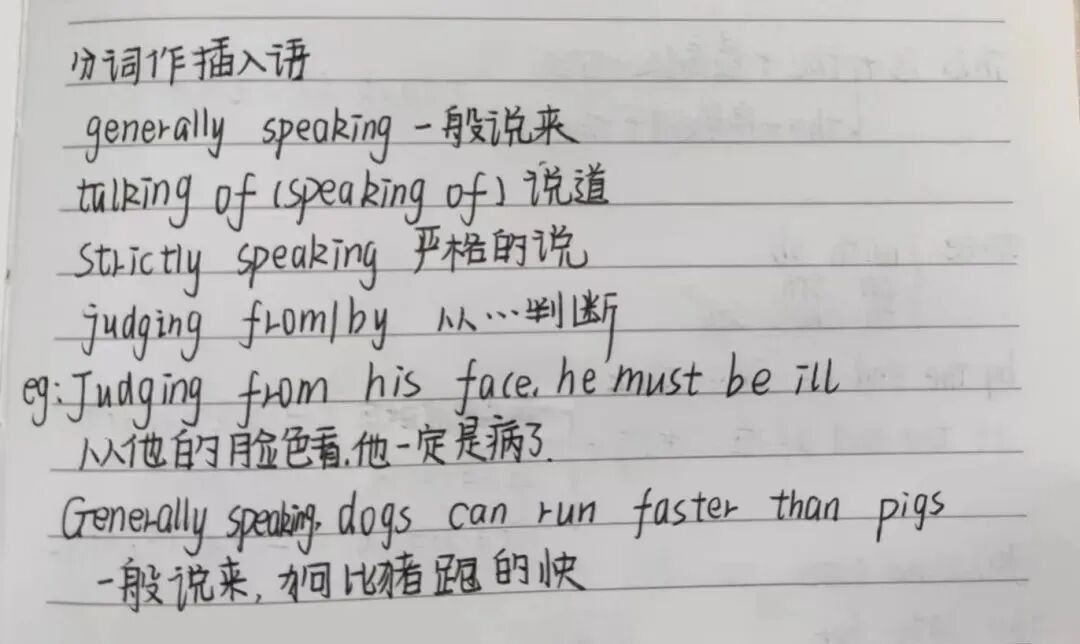 分词作插入语
generally speaking 一般说来
talking of (speaking of) 说道
Strictly speaking 严格的说
judging from/by 从…判断
eg: Judging from his face, he must be ill
从他的脸色看,他一定是病了.
Generally speaking, dogs can run faster than pigs
一般说来, 狗比猪跑的快